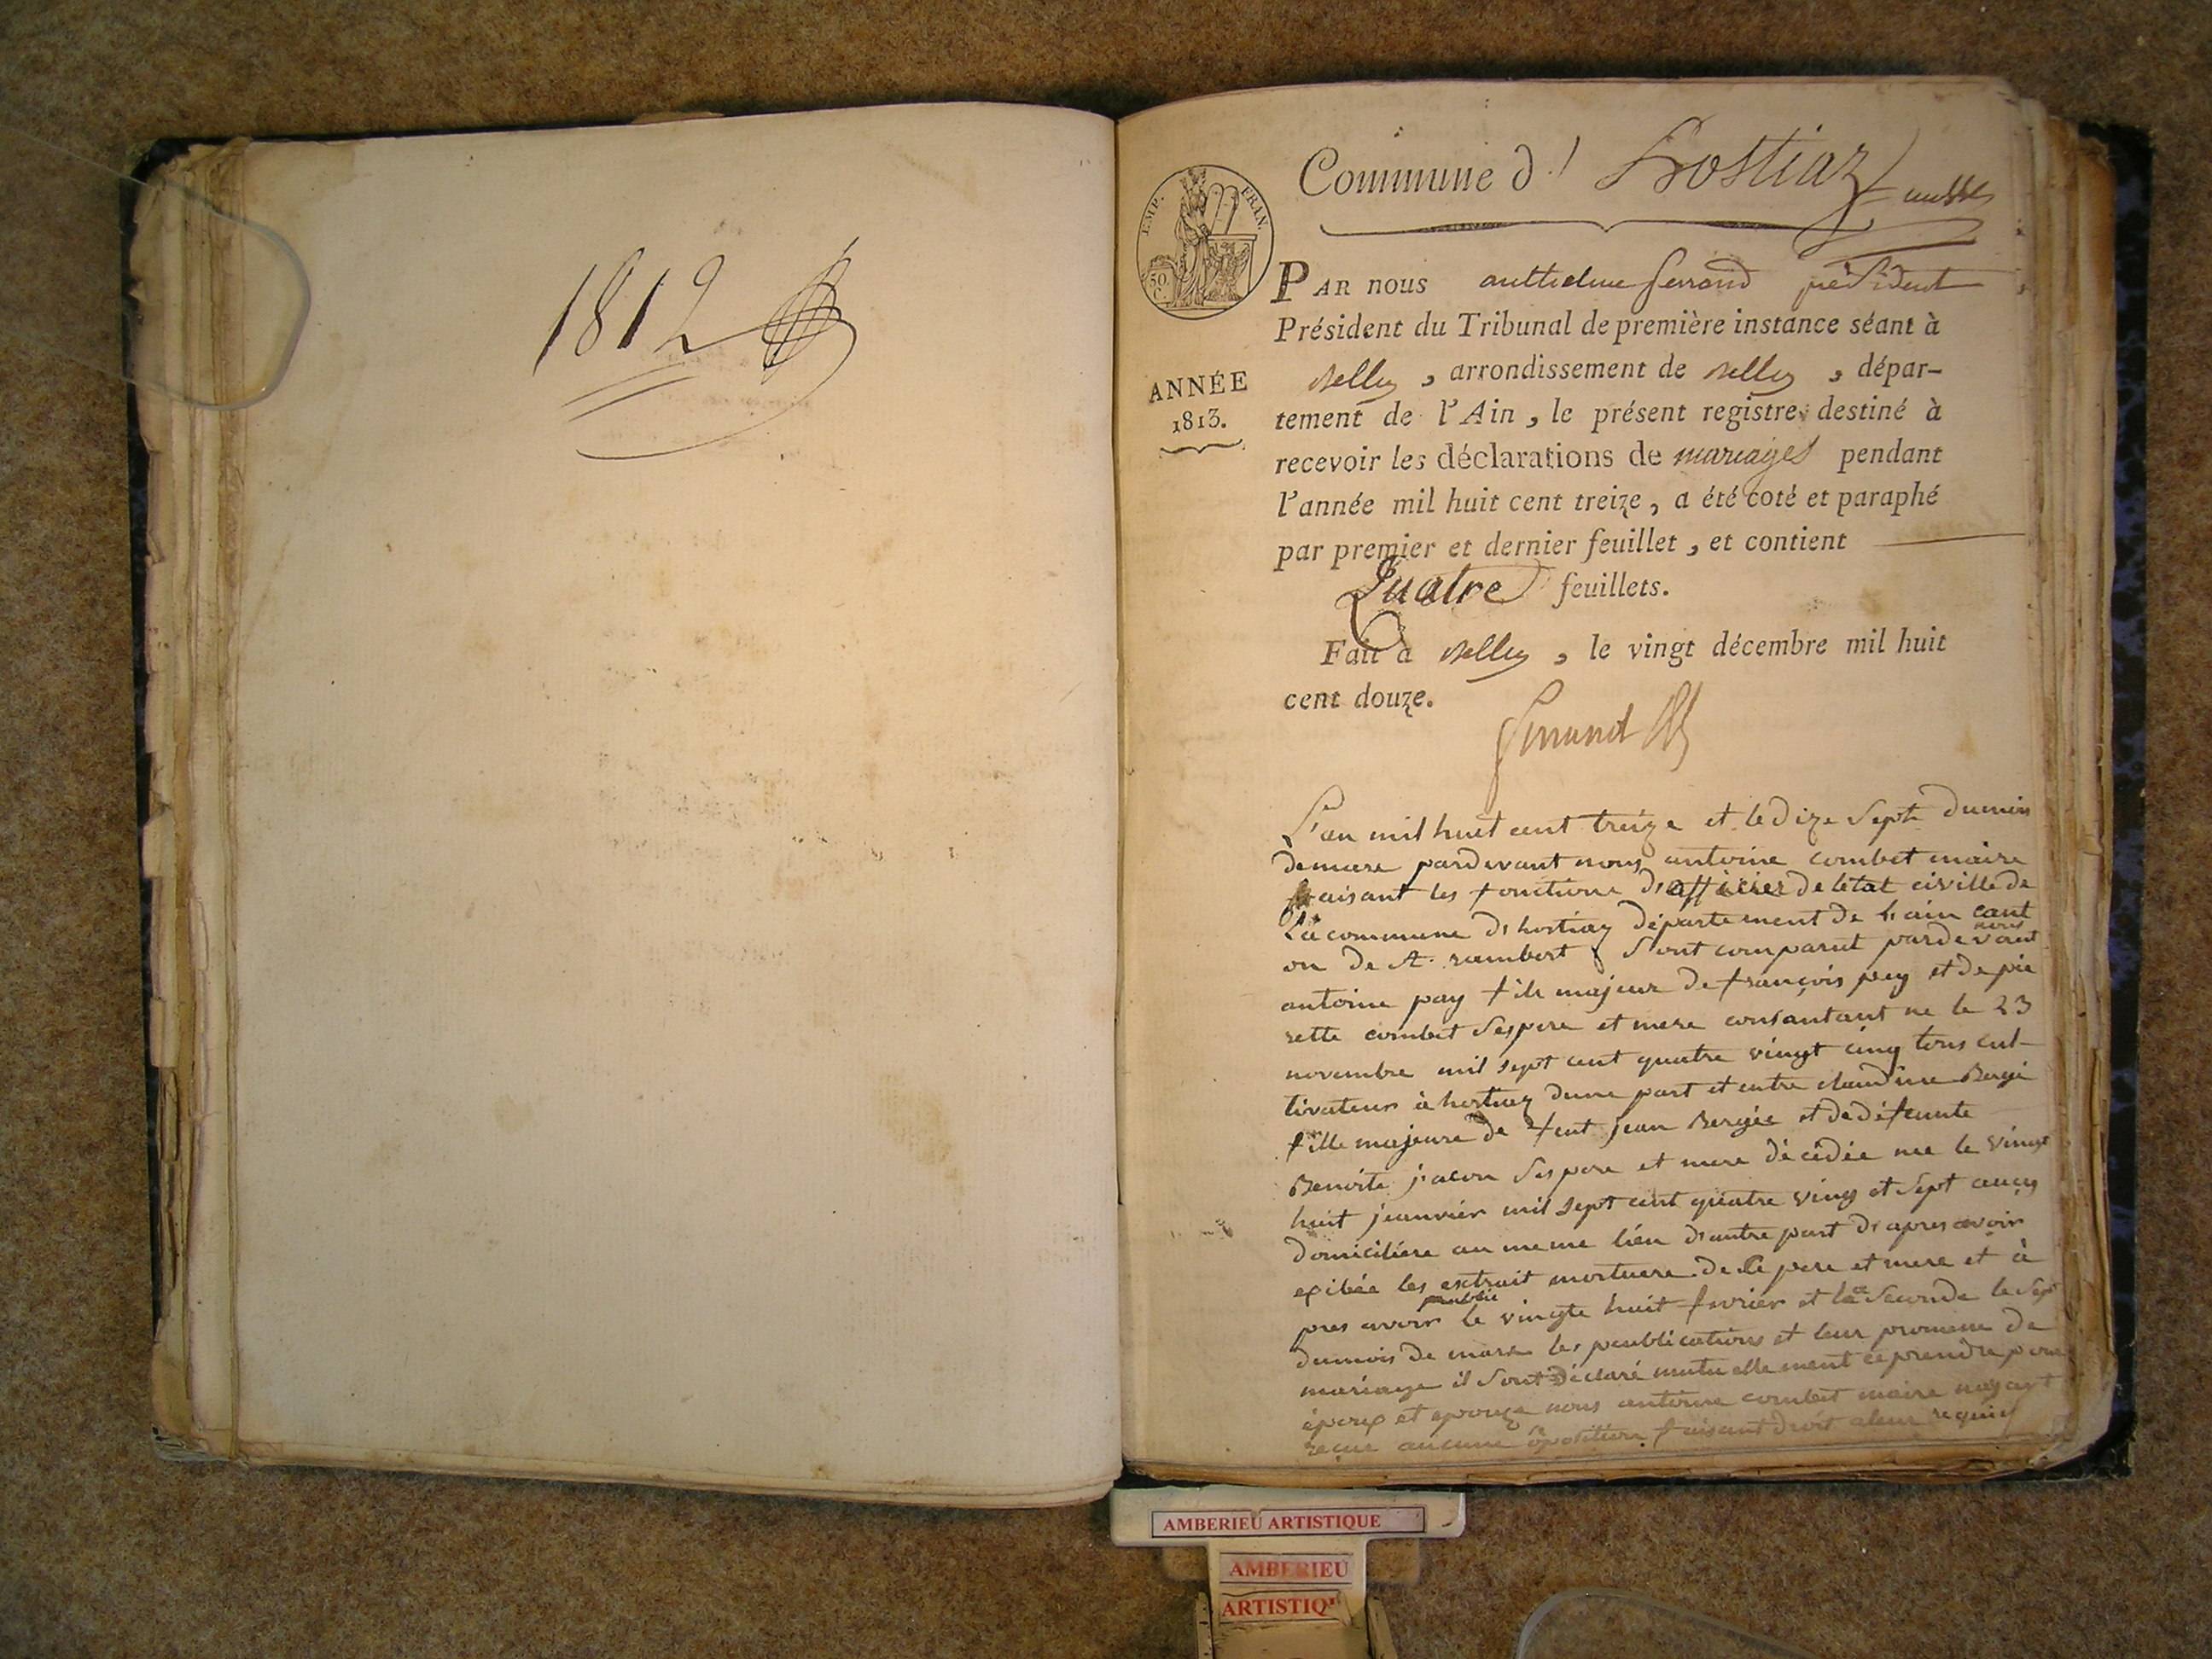 1812
Commune d' hostiaz
EMP. FRAN.
50.
C.
PAR nous anthelme ferrand président
Président du Tribunal de première instance séant à
Belley, arrondissement de Belley, dépar-
ANNÉE
1813.
tement de l'Ain, le présent registre, destiné à
recevoir les déclarations de mariages pendant
l'année mil huit cent treize, a été coté et paraphé
par premier et dernier feuillet, et contient
Quatre feuillets.
Fait à Belley, le vingt décembre mil huit
cent douze.
ferrand
L'an mil huit cent treize et le dize Sept du mois
de mars pardevant nous antoine combet maire
faisant les fonctions d'officier de létat civille de
La commune d'hostiaz département de l'ain cant
on de st. rambert Sont comparut pardevant nous
antoine pay fils majeur de françois pay et de pie
rette combet Ses pere et mere consantant ne le 23
novembre mil sept cent quatre vingt cinq tous cul-
tivateur à hostiaz dune part et entre claudine Bergé
fille majeure de feut jean Bergée et de défeunte
Benoite jacon Ses pere et mere décédée nee le vingt
huit jeanvier mil sept cent quatre ving et sept aucy
domiciliére au meme liéu d'autre part d'apres avoir
exibée les extrait mortuere de Ce pere et mere et à
pres avoir publié le vingte huit fevrier et la Seconde le Sept
du mois de mars les peublications et leur promesse de
mariage il Sont déclaré mutuellement ce prendre pour
époux et epouze nous antoine combet maire nayant
reçue aucune opotition faisant droit a leur requis
AMBERIEU ARTISTIQUE
AMBERIEU
ARTISTIQ